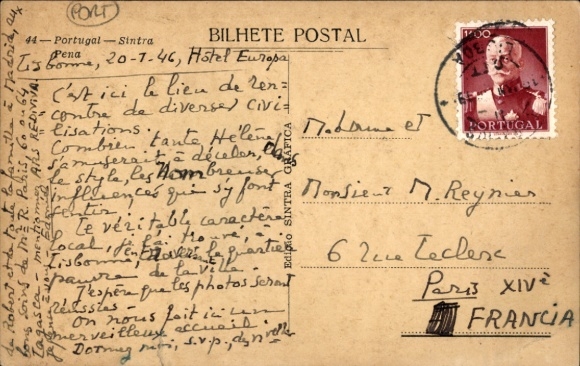 PORT
BILHETE POSTAL
44 – Portugal – Sintra
Pena
Lisbonne, 20-7-46, Hôtel Europa
C'est ici le lieu de ren-
contre de diverses civi-
lisations.
Combien tante Hélène
s'amuserait à déceler, dans
le style, les nombreuses
influences qui s'y font
sentir.
Le véritable caractère
local, je l'ai trouvé, à
Lisbonne, le quartier
pauvre de la ville.
J'espère que les photos seront
réussies.
On nous fait ici un
merveilleux accueil.
Donnez moi, s.v.p., des nvelles
de Robert et de toute la famille à Madrid, aux
bons soins de R. Paris 60 ou 64
Lagasca - mentionner ARS REDIVIVA
Edição SINTRA GRÁFICA
Madame et
Monsieur M. Reynier
6 rue Leclerc
Paris XIVè
FRANCIA
1$00
PORTUGAL